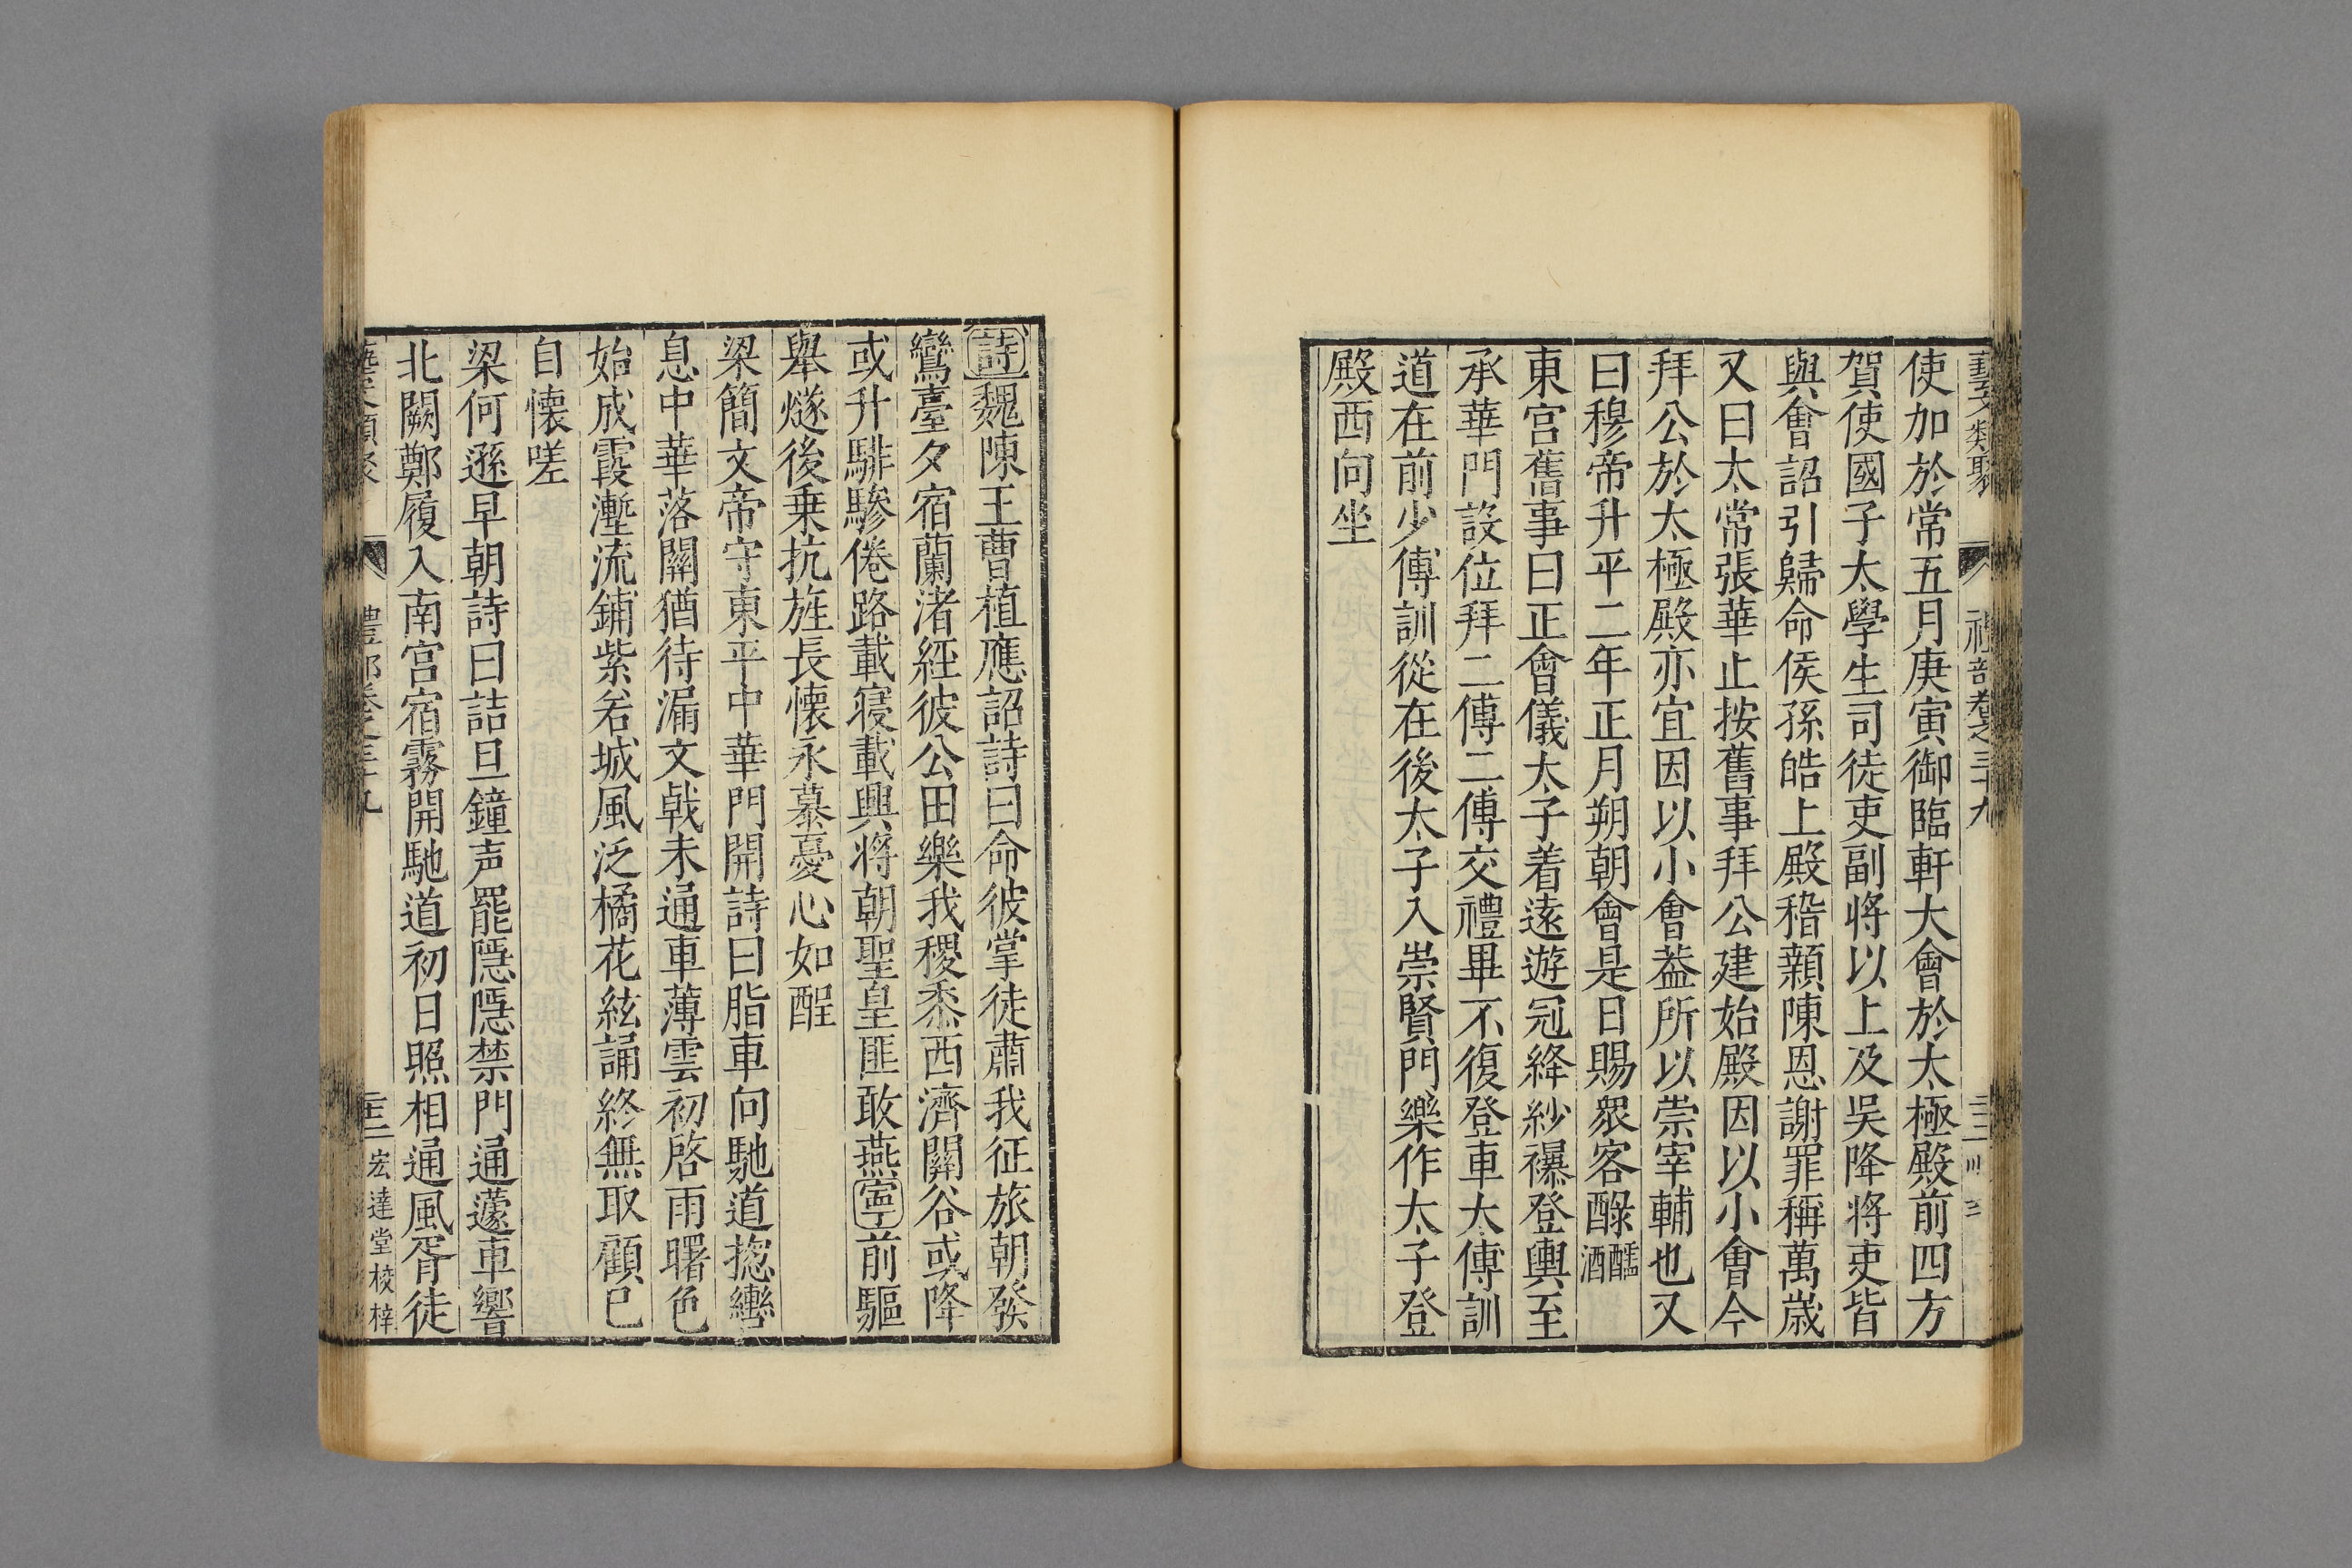 藝文類聚 禮部卷之三十九
使加於常五月庚寅御臨軒大會於太極殿前四方
賀使國子太學生司徒吏副將以上及吳降將吏皆
與會詔引歸命侯孫皓上殿稽顙陳恩謝罪稱萬歲
又曰太常張華止按舊事拜公建始殿因以小會今
拜公於太極殿亦宜因以小會葢所以崇宰輔也又
曰穆帝升平二年正月朔朝會是日賜衆客醁醽酒
東宮舊事曰正會儀太子着遠遊冠絳紗襮登輿至
承華門設位拜二傅二傅交禮畢不復登車太傅訓
道在前少傅訓從在後太子入崇賢門樂作太子登
殿西向坐
詩魏陳王曹植應詔詩曰命彼掌徒肅我征旅朝發
鸞臺夕宿蘭渚經彼公田樂我稷黍西濟關谷或降
或升騑驂倦路載寢載興將朝聖皇匪敢燕寧前驅
舉燧後乗抗旌長懷永慕憂心如酲
梁簡文帝守東平中華門開詩曰脂車向馳道摠轡
息中華落關猶待漏文戟未通車薄雲初啓雨曙色
始成霞漸流鋪紫若城風泛橘花絃誦終無取顧已
自懷嗟
梁何遜早朝詩曰詰旦鐘声罷隱隱禁門通蘧車響
北闕鄭履入南宮宿霧開馳道初日照相通風胥徒
藝文類聚 禮部卷之三十九 宏達堂校梓